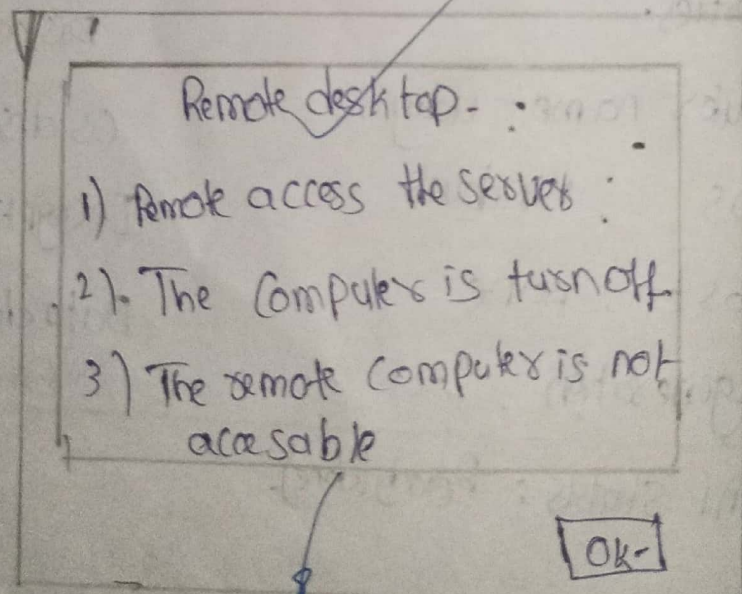 Remote desktop- :
1) Remote access the server :
2). The Computer is turn off
3) The remote computer is not
accesable
Ok-